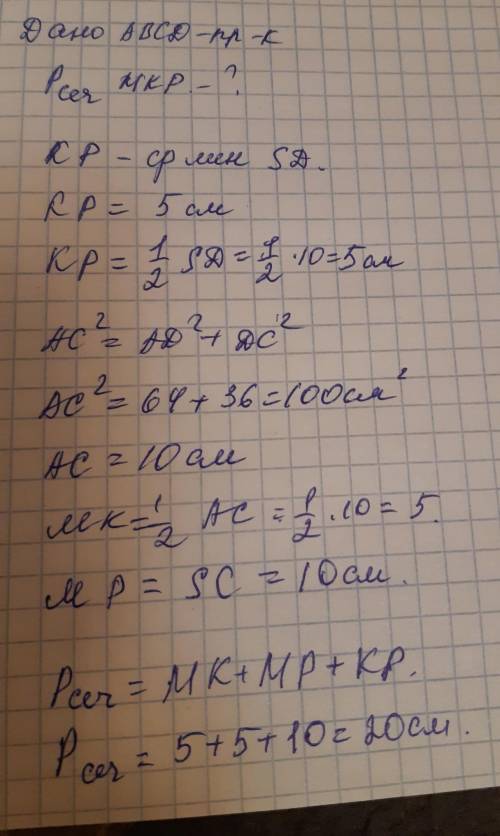 Дано ABCD-пр-к
Pсеч MKP - ?
KP - ср лин SD.
KP = 5 см
KP = 1/2 SD = 1/2 · 10 = 5 см
AC² = AD² + DC²
AC² = 64 + 36 = 100 см²
AC = 10 см
MK = 1/2 AC = 1/2 · 10 = 5.
MP = SC = 10 см.
Pсеч = MK + MP + KP.
Pсеч = 5 + 5 + 10 = 20 см.